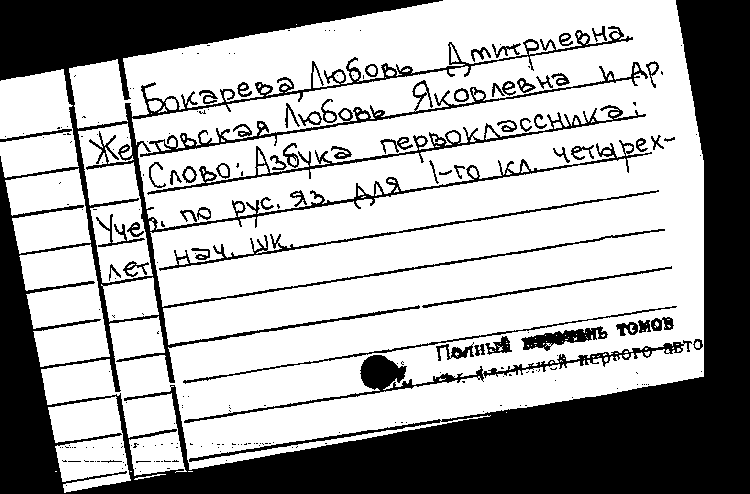 Бокарева, Любовь Дмитриевна.
Желтовская, Любовь Яковлевна и др.
Слово: Азбука первоклассника:
Учеб. по рус. яз. для 1-го кл. четырех-
лет нач. шк.
Полный перечень томов
фамилией первого авто